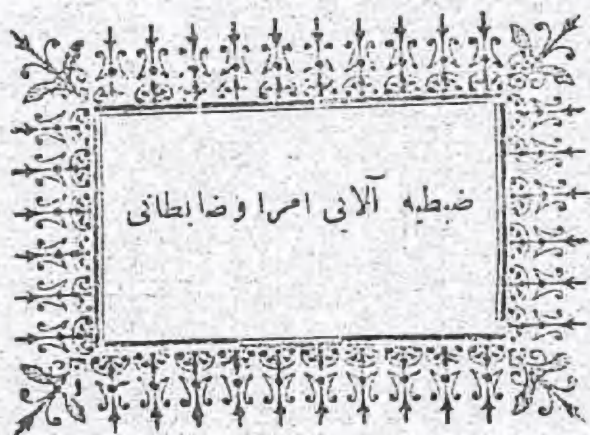 ضبطیه آلایی امرا وضابطانی